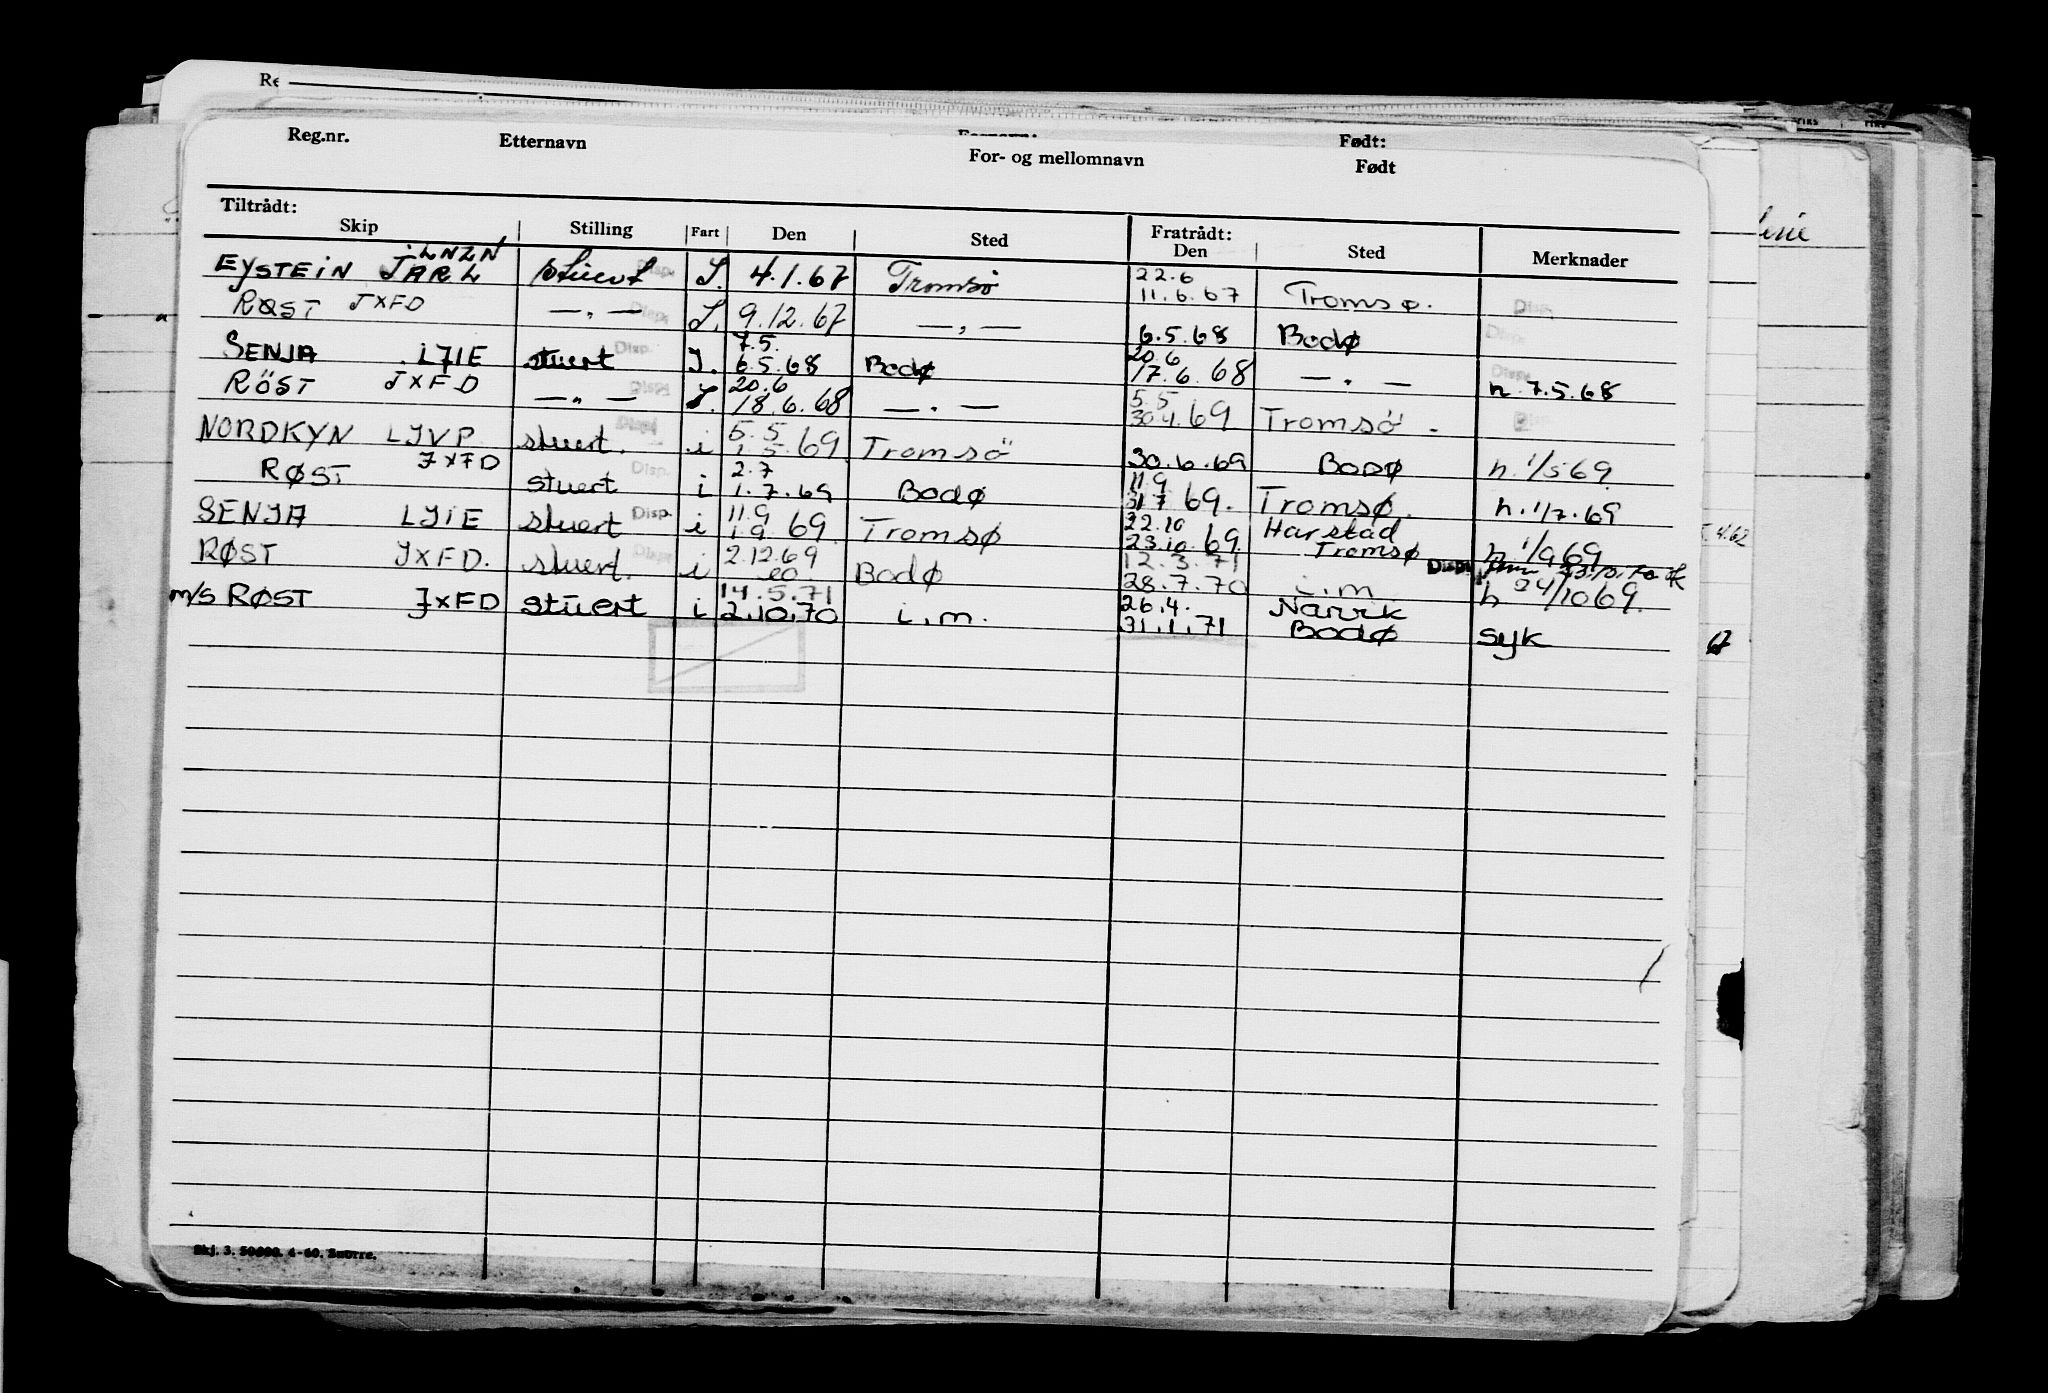 Re
Reg.nr. Etternavn For- og mellomnavn Født:
Født
Tiltrådt: Fratrådt:
Skip Stilling Fart Den Sted Den Sted Merknader
LNZN 22.6
EYSTEIN JARL stuert Disp. I. 4.1.67 Tromsø 11.6.67 Tromsø. Disp.
RØST JXFD — " — Disp. I. 9.12.67 — " — 6.5.68 Bodø Disp.
7.5. 20.6
SENJA LJIE stuert Disp. I. 6.5.68 Bodø 17.6.68 — " — Disp. h. 7.5.68
20.6 5.5
RÖST JXFD — " — Disp. I. 18.6.68 — " — 30.4.69 Tromsö.
5.5
NORDKYN LJVP stuert. Disp. i 1.5.69 Tromsö 30.6.69 Bodø h. 1/5 69.
2.7 11.9
RØST JXFD stuert Disp. i 1.7.69 Bodø 31.7 69. Tromsø. h. 1/7.69
11.9 22.10 Harstad
SENJA LJIE stuert Disp. i 1.9.69 Tromsø 23.10.69. Tromsø h 1/9 69
2.12.69 12.3.71 Disp. 23.10.70
RØST JXFD. stuert. Disp. i Bodø 28.7.70 i.m. h 24/10 69.
14.5.71 26.4. Narvik
m/s RØST JXFD stuert i 2.10.70 i.m. 31.1.71 Bodø syk
Skj. 3. 50000. 4-60. Snorre.